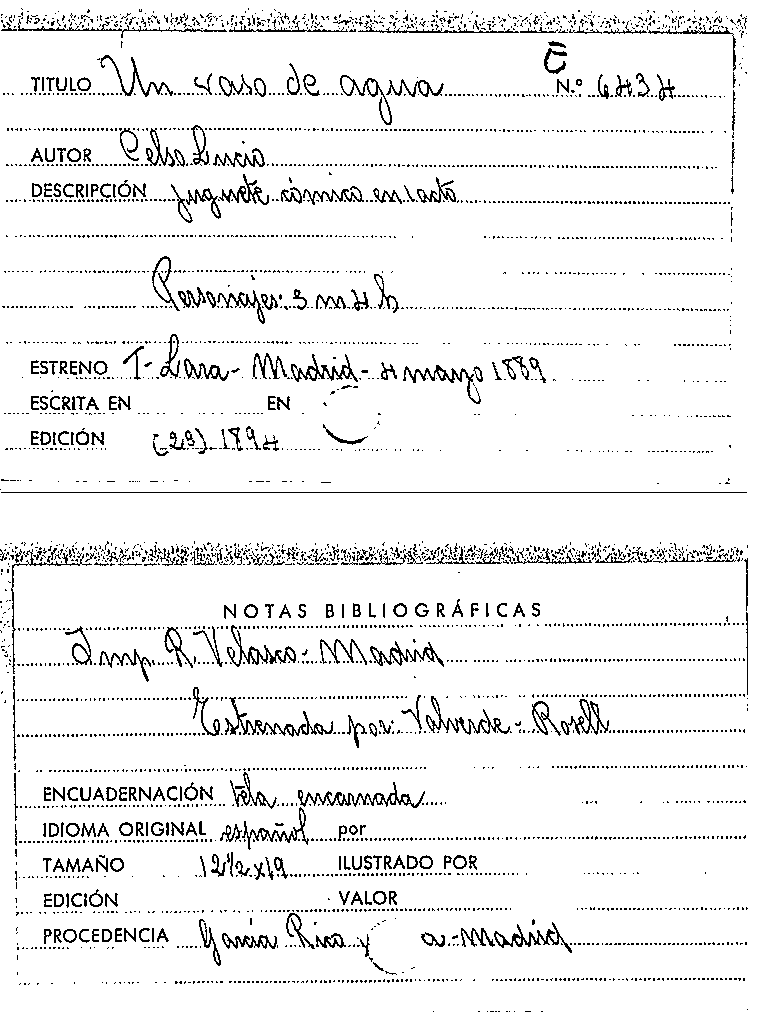 E
TITULO Un vaso de agua N.º 6434
AUTOR Celso Lucio
DESCRIPCIÓN juguete cómico en 1 acto
Personajes: 3 m 4 h
ESTRENO T- Lara- Madrid- 4 mayo 1889
ESCRITA EN EN
EDICIÓN (2ª) 1894
NOTAS BIBLIOGRÁFICAS
Imp. R. Velasco- Madrid
Estrenada por: Valverde- Rosell
ENCUADERNACIÓN tela encarnada
IDIOMA ORIGINAL español por
TAMAÑO 12½x19 ILUSTRADO POR
EDICIÓN VALOR
PROCEDENCIA García Rico y a-Madrid